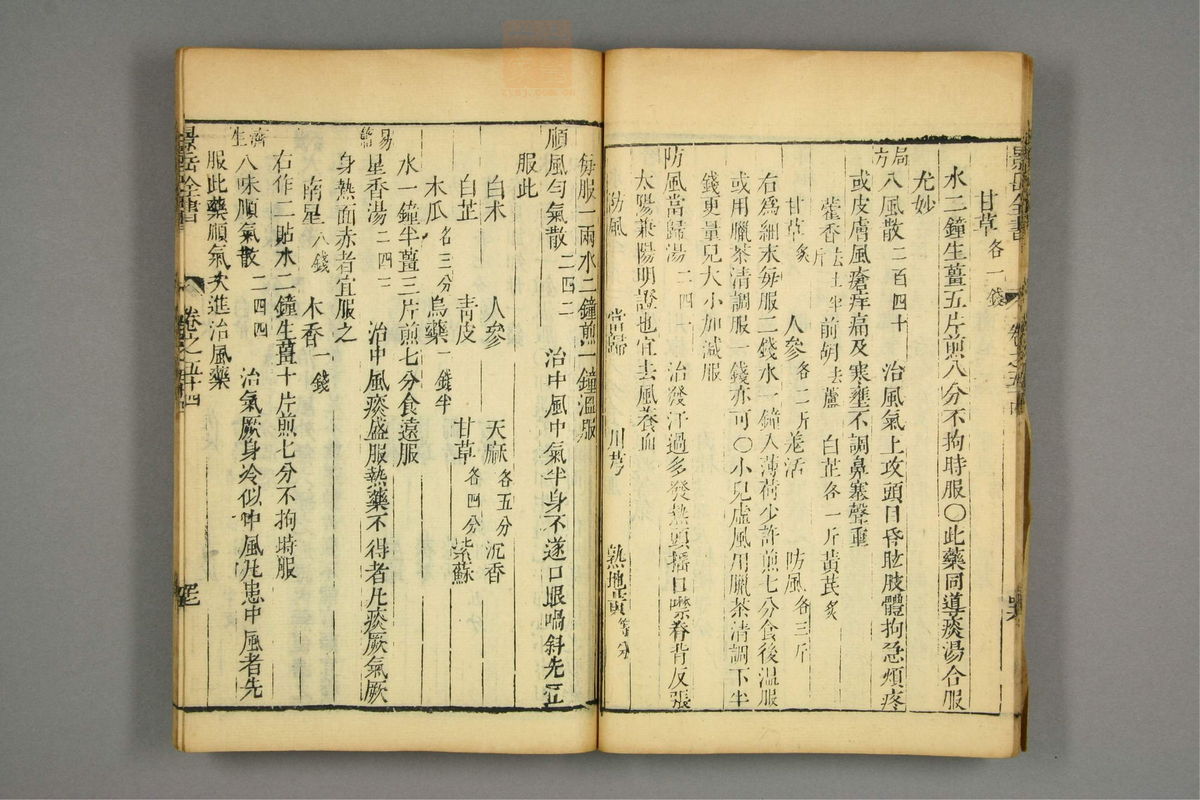 甘草各一錢
水二鐘生薑五片煎八分不拘時服〇此藥同導痰湯合服
尤妙
局方八風散二百四十 治風氣上攻頭目昏眩肢體拘急煩疼
或皮膚風瘡痒痛及寒壅不調鼻塞聲重
藿香去土半斤 前胡去蘆 白芷各一斤 黃芪炙
甘草炙 人參各二斤 羌活 防風各三斤
右爲細末每服二錢水一鐘入薄荷少許煎七分食後温服
或用臘茶清調服一錢亦可〇小兒虛風用臘茶清調下半
錢更量兒大小加減服
防風當歸湯二四一 治發汗過多發熱頭搖口噤脊背反張
太陽兼陽明證也宜去風養血
防風 當歸 川芎 熟地黃等分
每服一兩水二鐘煎一鐘溫服
順風勻氣散二四二 治中風中氣半身不遂口眼喎斜先宜
服此
白朮 人參 天麻各五分 沉香
白芷 青皮 甘草各四分 紫蘇
木瓜各三分 烏藥一錢半
水一鐘半薑三片煎七分食遠服
易簡星香湯二四三 治中風痰盛服熱藥不得者凡痰厥氣厥
身熱面赤者宜服之
南星八錢 木香一錢
右作二貼水二鐘生薑十片煎七分不拘時服
濟生八味順氣散二四四 治氣厥身冷似中風凡患中風者先
服此藥順氣次進治風藥
景岳全書 卷之五十四